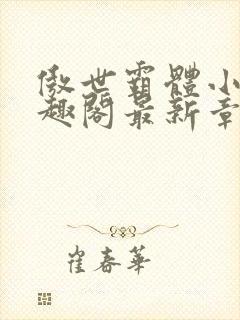 傲世霸體小
趣閣最新章
崔春華